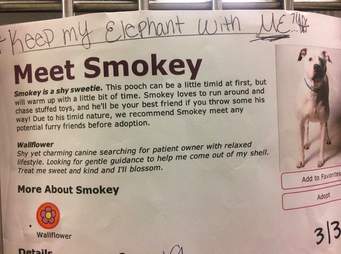 Keep my Elephant with Me
Meet Smokey
Smokey is a shy sweetie. This pooch can be a little timid at first, but
will warm up with a little bit of time. Smokey loves to run around and
chase stuffed toys, and he'll be your best friend if you throw some his
way! Due to his timid nature, we recommend Smokey meet any
potential furry friends before adoption.
Wallflower
Shy yet charming canine searching for patient owner with relaxed
lifestyle. Looking for gentle guidance to help me come out of my shell.
Treat me sweet and kind and I'll blossom.
More About Smokey
Wallflower
Details
Add to Favorites
Adopt
3/3